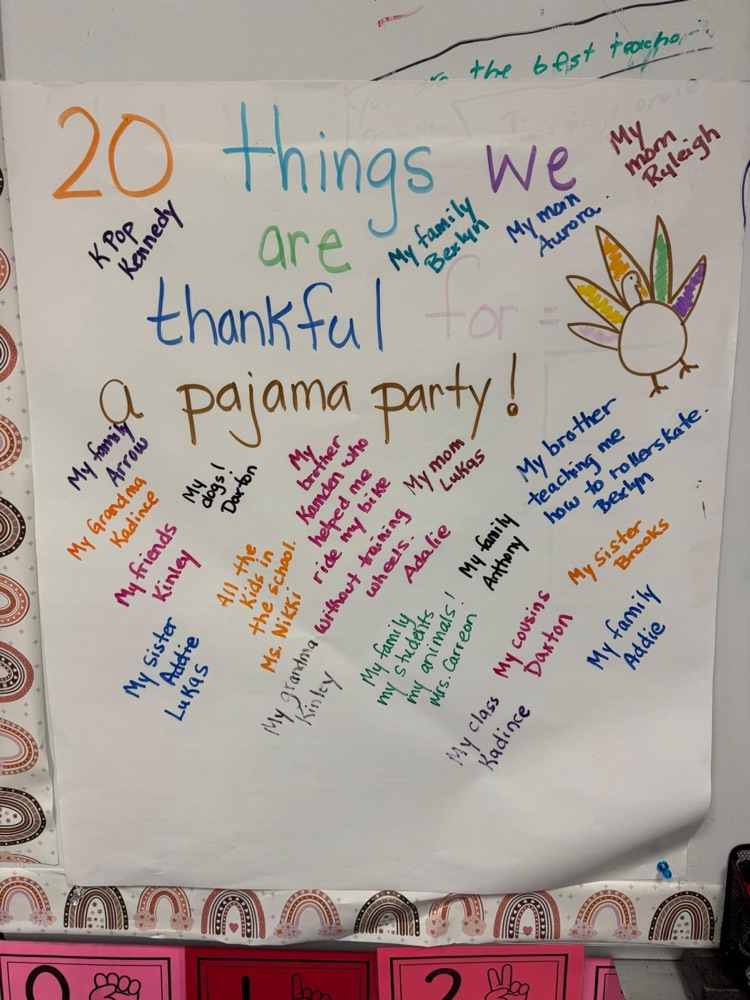 the best teacher
20 things we
are
thankful for =
a pajama party!
My
mom
Ryleigh
K Pop
Kennedy
My family
Bexlyn
My mom
Aurora
My family
Arrow
My Grandma
Kadince
My
dogs!
Daxton
My
brother
Kamden who
helped me
ride my bike
without training
wheels.
Adalie
My mom
Lukas
My brother
teaching me
how to rollerskate.
Bexlyn
My friends
Kinley
All the
Kids in
the school.
Ms. Nikki
My family
Anthony
My sister
Brooks
My sister
Addie
Lukas
My grandma
Kinley
My family
my students
my animals!
Mrs. Carreon
My cousins
Daxton
My family
Addie
My class
Kadince
0
1
2